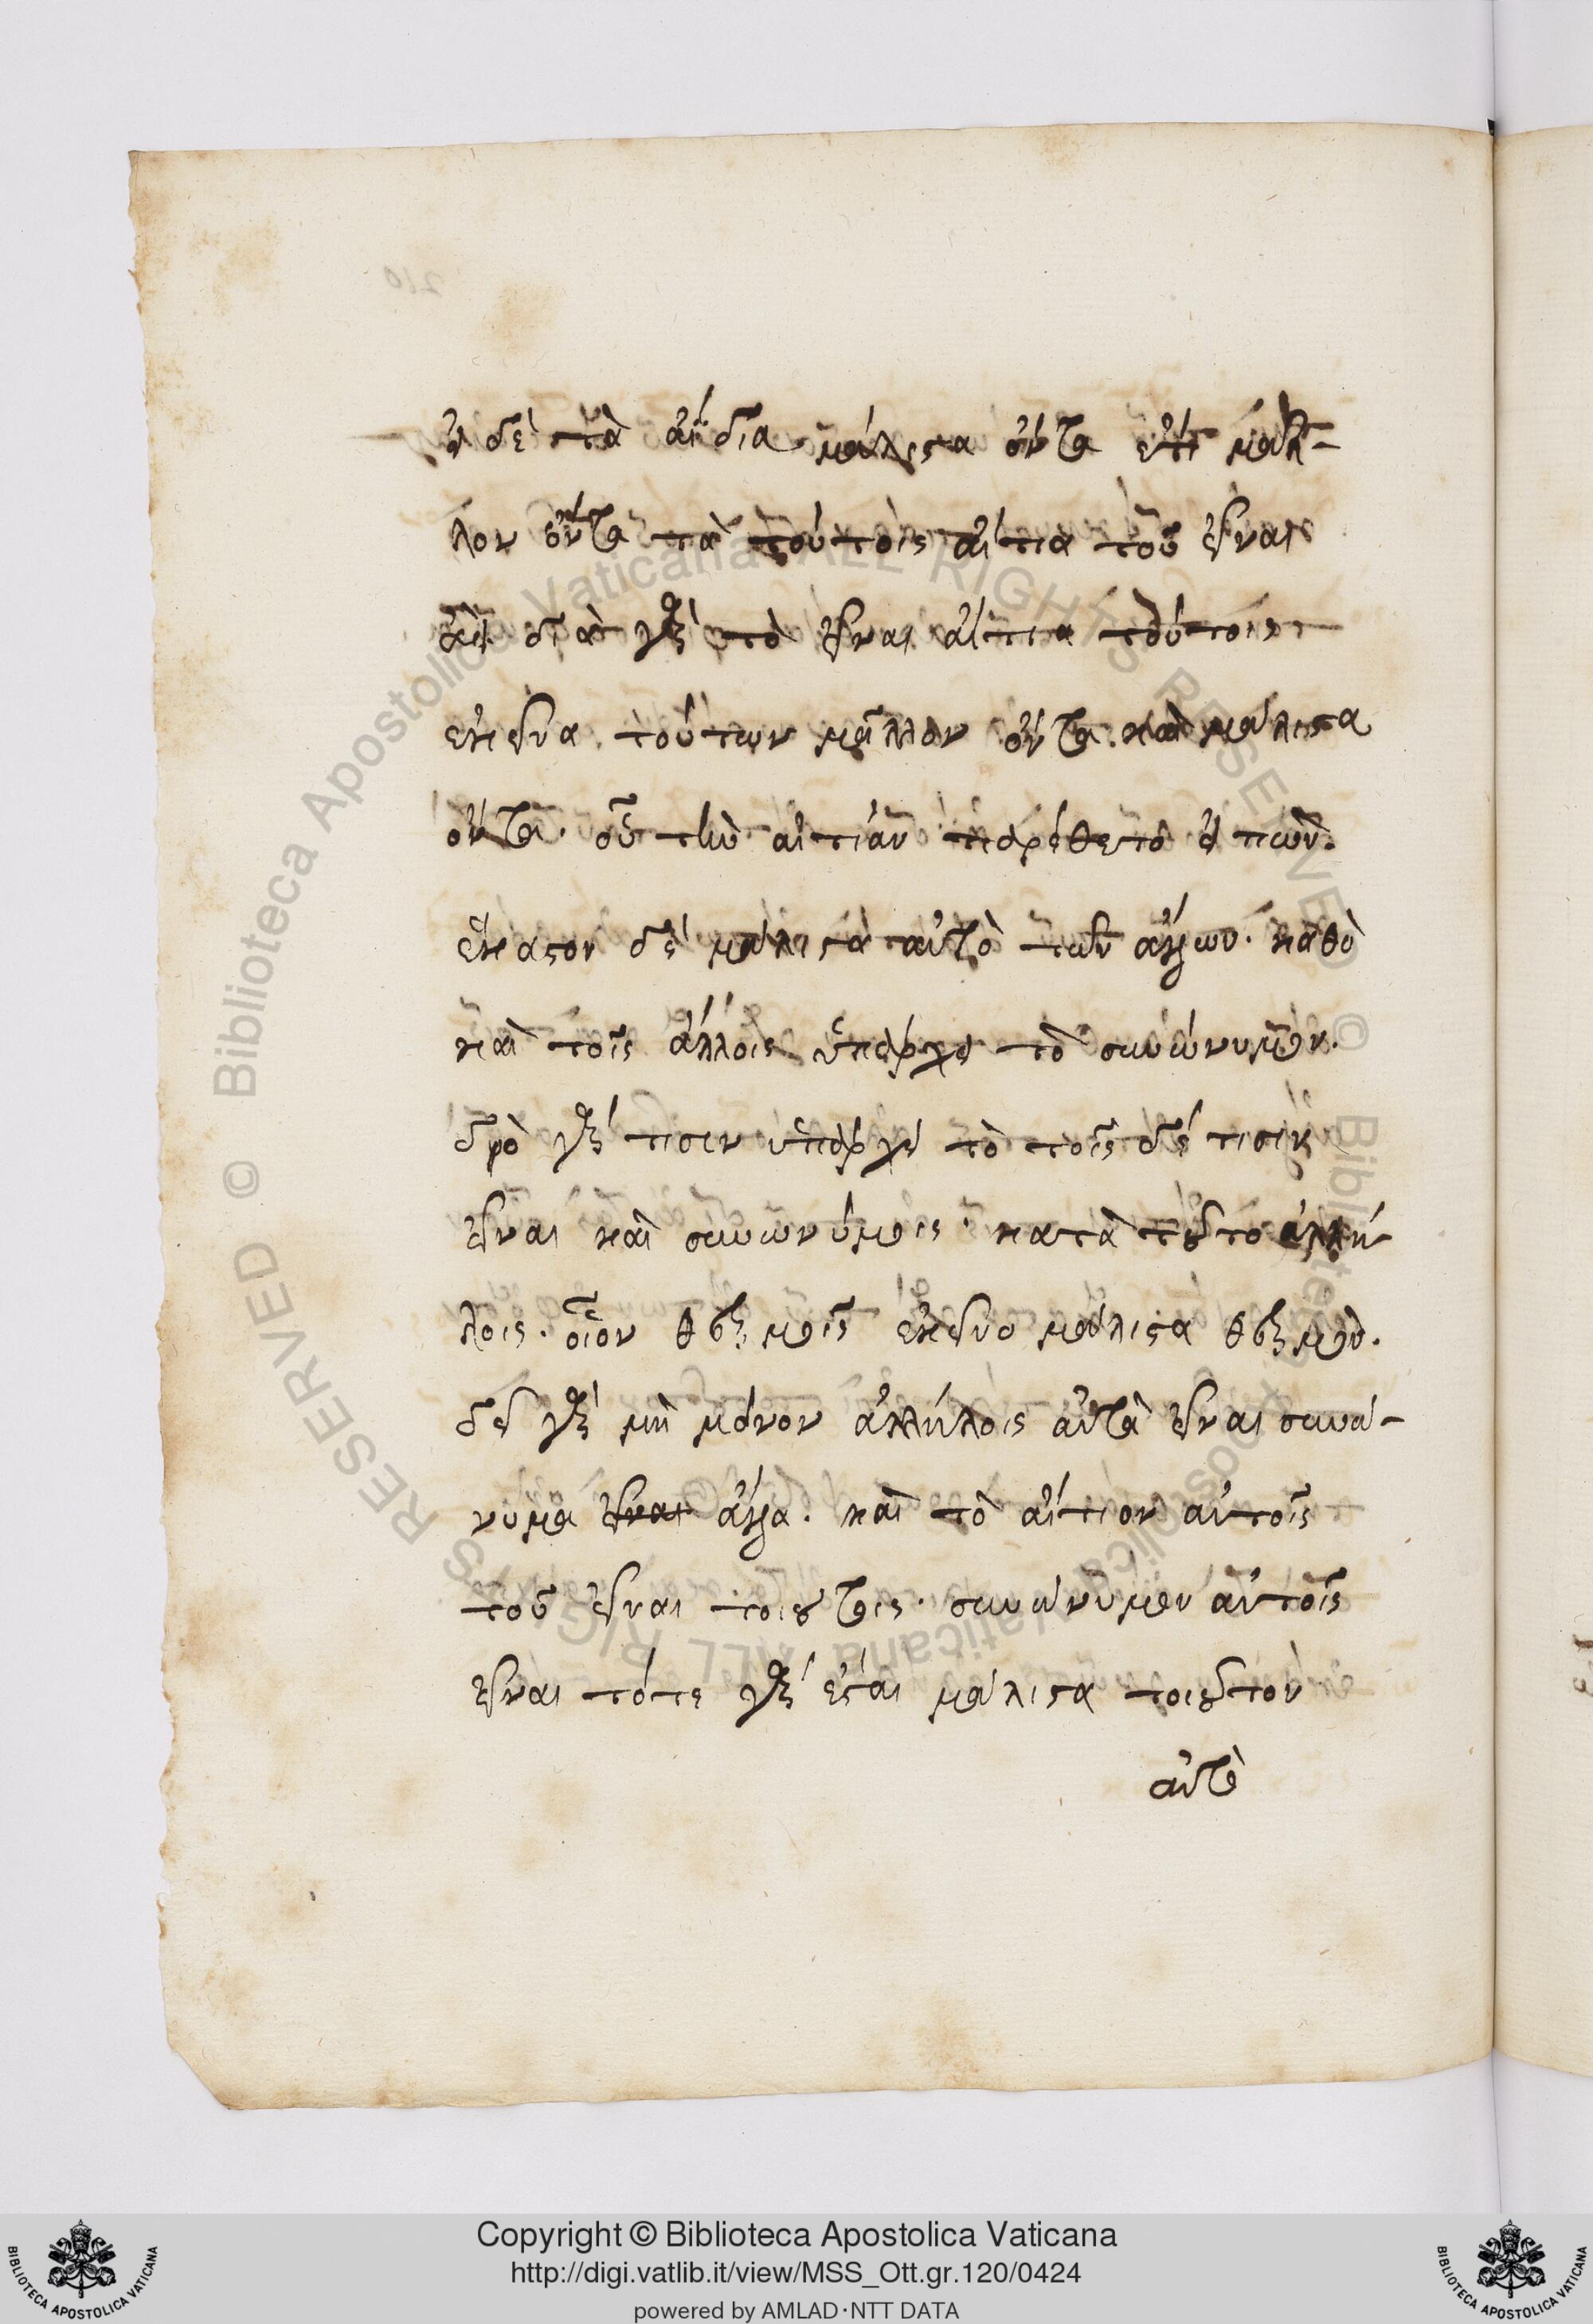 εἰ δὲ τὰ ἀΐδια μάλιστα ὄντα ἔτι μᾶλ-
λον ὄντα τὰ τούτοις αἴτια τοῦ εἶναι
ἀεί. διὰ γὰρ τὸ εἶναι αἴτια τούτοις
ἐκεῖνα. τούτων μᾶλλον ὄντα. καὶ μάλιστα
ὄντα. οὗ τὴν αἰτίαν παρέθετο εἰπών.
ἕκαστον δὲ μάλιστα αὐτὸ τῶν ἄλλων. καθὸ
καὶ τοῖς ἄλλοις ὑπάρχει τὸ συνώνυμον.
δι' ὃ γάρ τισιν ὑπάρχει τὸ τοῖς δέ τισιν
εἶναι καὶ συνωνύμοις. κατὰ τοῦτο ἀλλή-
λοις. οἷον θερμοῖς ἐκεῖνο μάλιστα θερμόν.
δεῖ γὰρ μὴ μόνον ἀλλήλοις αὐτὰ εἶναι συνώ-
νυμα εἶναι ἄλλα. καὶ τὸ αἴτιον αὐτοῖς
τοῦ εἶναι τοιούτοις. συνώνυμον αὐτοῖς
εἶναι τότε γὰρ ἔσται μάλιστα τοιοῦτον
αὐτὸ
210
Copyright © Biblioteca Apostolica Vaticana
http://digi.vatlib.it/view/MSS_Ott.gr.120/0424
powered by AMLAD·NTT DATA
BIBLIOTECA APOSTOLICA VATICANA
BIBLIOTECA APOSTOLICA VATICANA
© Biblioteca Apostolica Vaticana ALL RIGHTS RESERVED
© Biblioteca Apostolica Vaticana ALL RIGHTS RESERVED